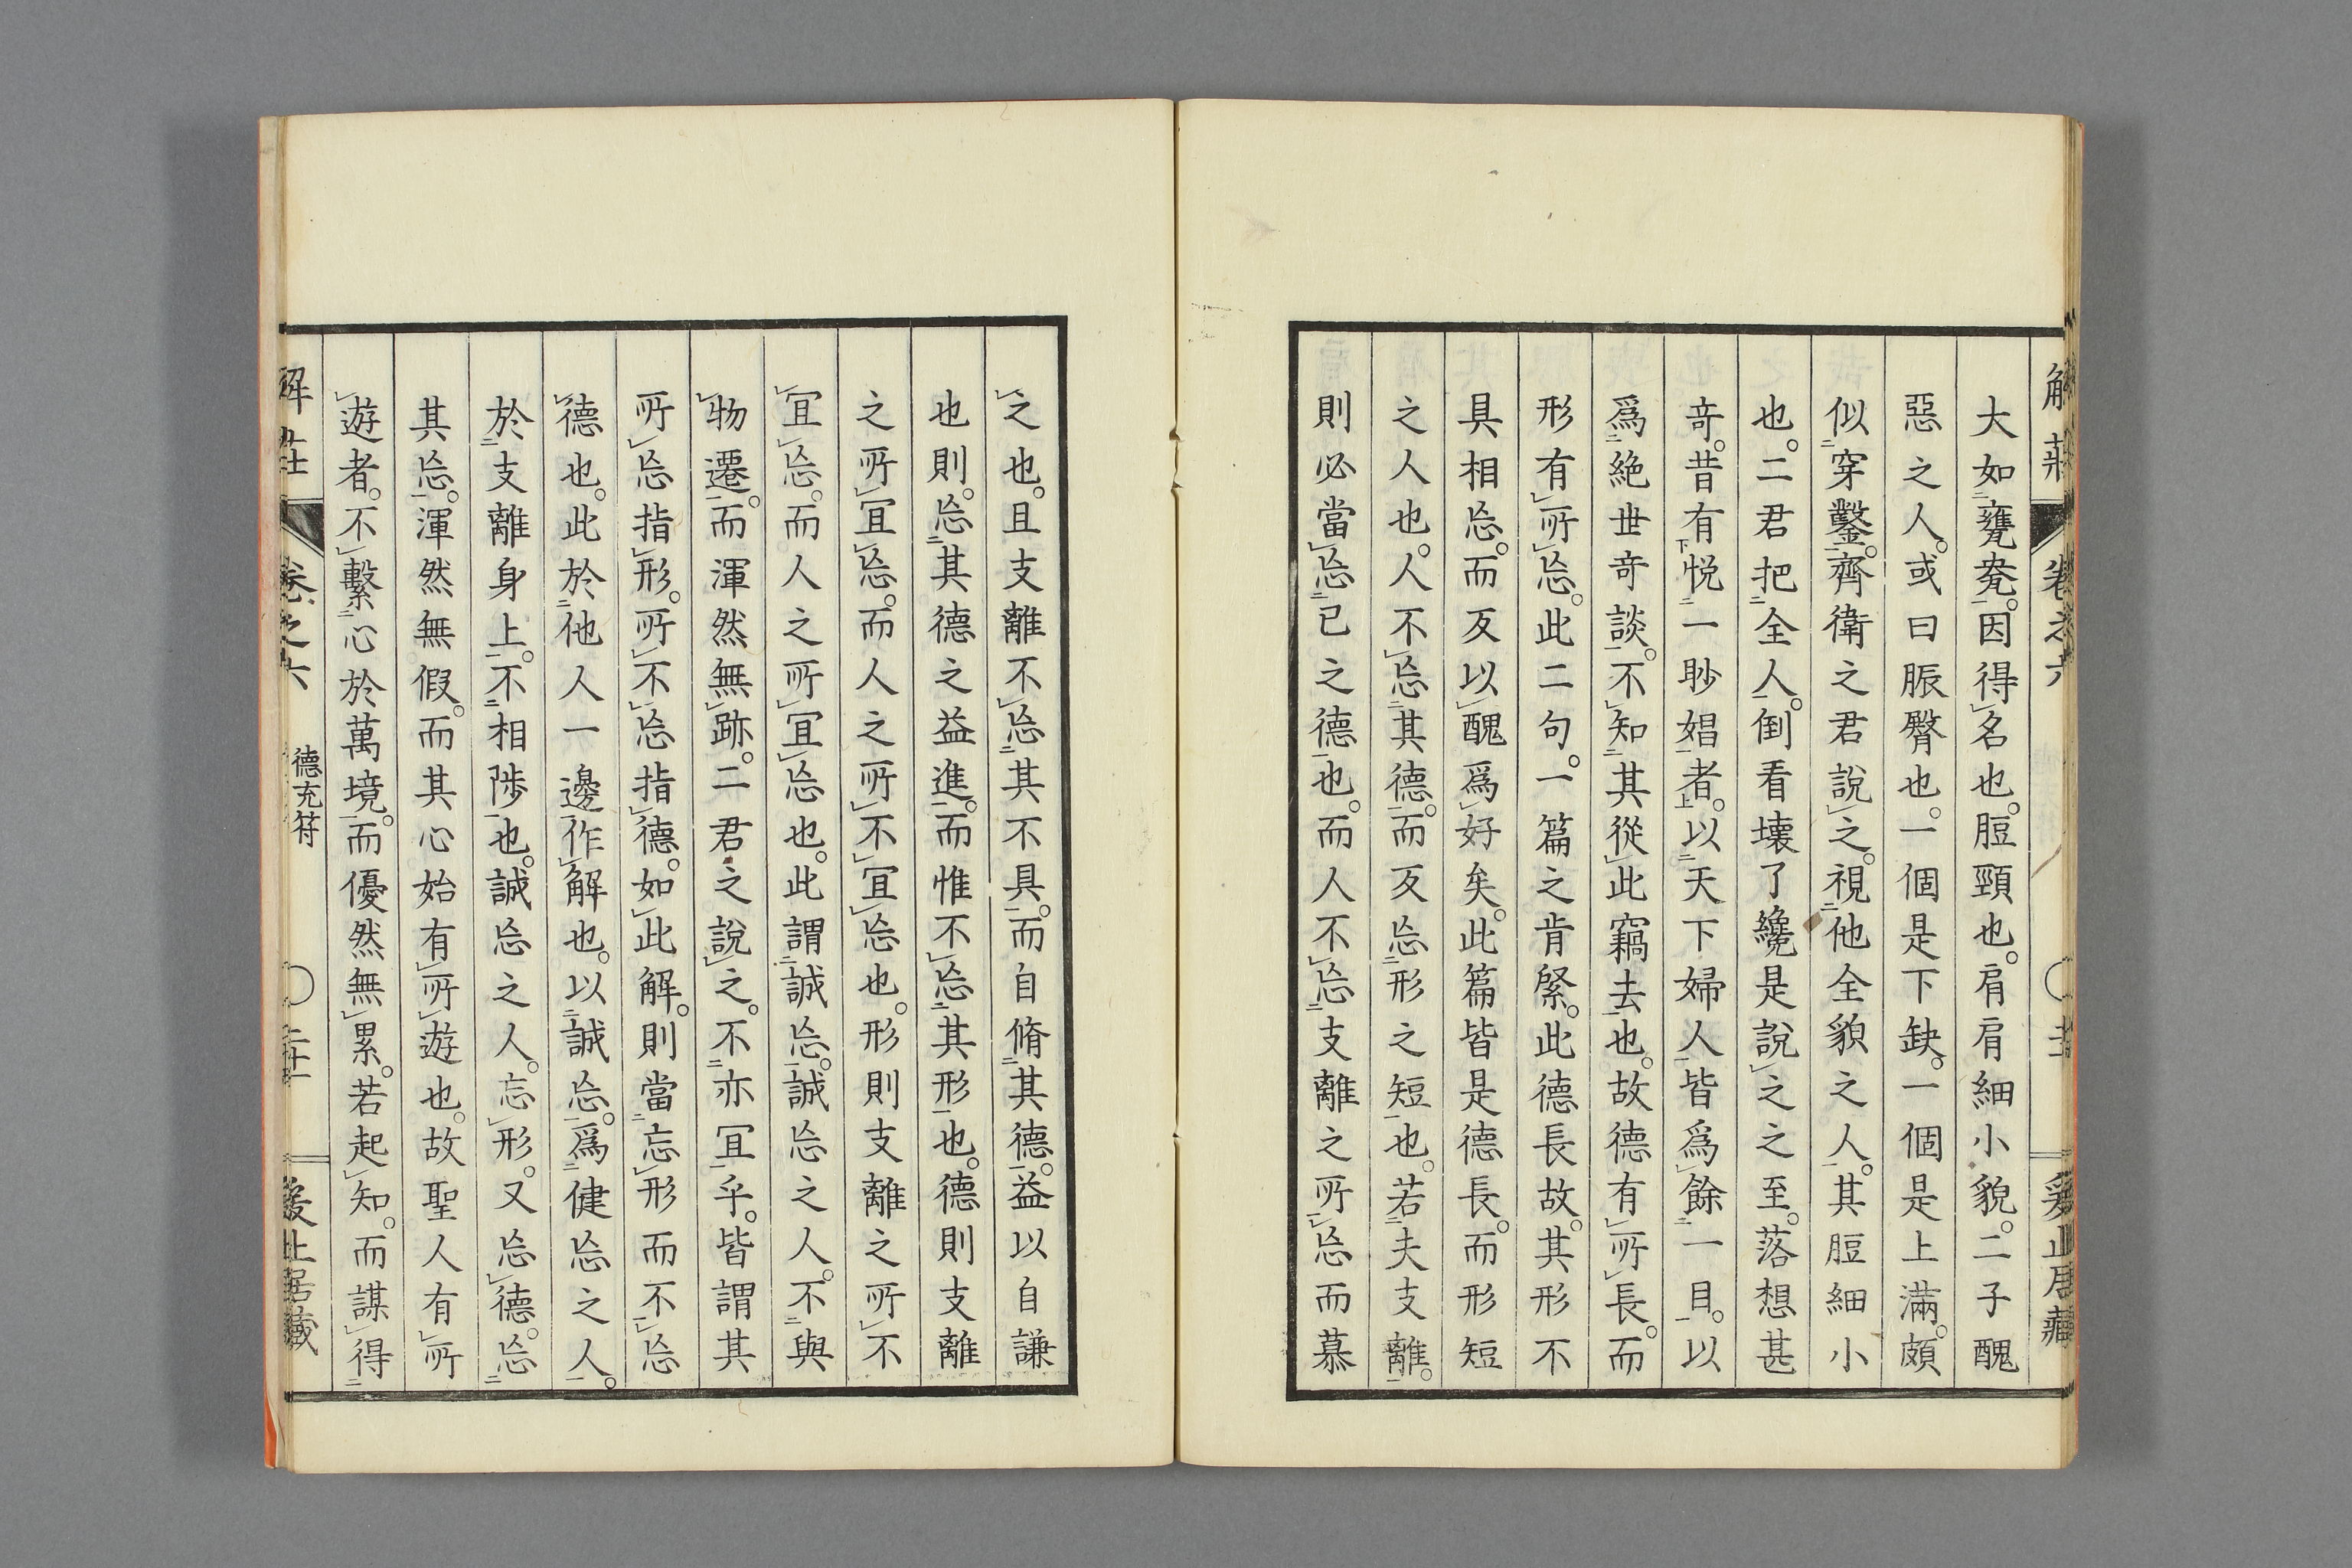 大如甕㼜。因得名也。脰頸也。肩肩細小貌。二子醜
惡之人。或曰脤臀也。一個是下缺。一個是上滿。頗
似穿鑿。齊衛之君說之。視他全貌之人。其脰細小
也。二君把全人。倒看壞了纔是說之之至。落想甚
奇。昔有悦一眇娼者。以天下婦人皆爲餘一目。以
爲絶世奇談。不知其從此竊去也。故德有所長。而
形有所忘。此二句。一篇之肯綮。此德長故。其形不
具相忘。而反以醜爲好矣。此篇皆是德長。而形短
之人也。人不忘其德。而反忘形之短也。若夫支離。
則必當忘已之德也。而人不忘支離之所忘而慕
之也。且支離不忘其不具。而自脩其德。益以自謙
也則。忘其德之益進。而惟不忘其形也。德則支離
之所宜忘。而人之所不宜忘也。形則支離之所不
宜忘。而人之所宜忘也。此謂誠忘。誠忘之人。不與
物遷。而渾然無跡。二君之說之。不亦宜乎。皆謂其
所忘指形。所不忘指德。如此解。則當忘形而不忘
德也。此於他人一邊作解也。以誠忘。爲健忘之人。
於支離身上。不相陟也。誠忘之人。忘形。又忘德。忘
其忘。渾然無假。而其心始有所遊也。故聖人有所
遊者。不繫心於萬境。而優然無累。若起知。而謀得
解莊
卷之六
德充符